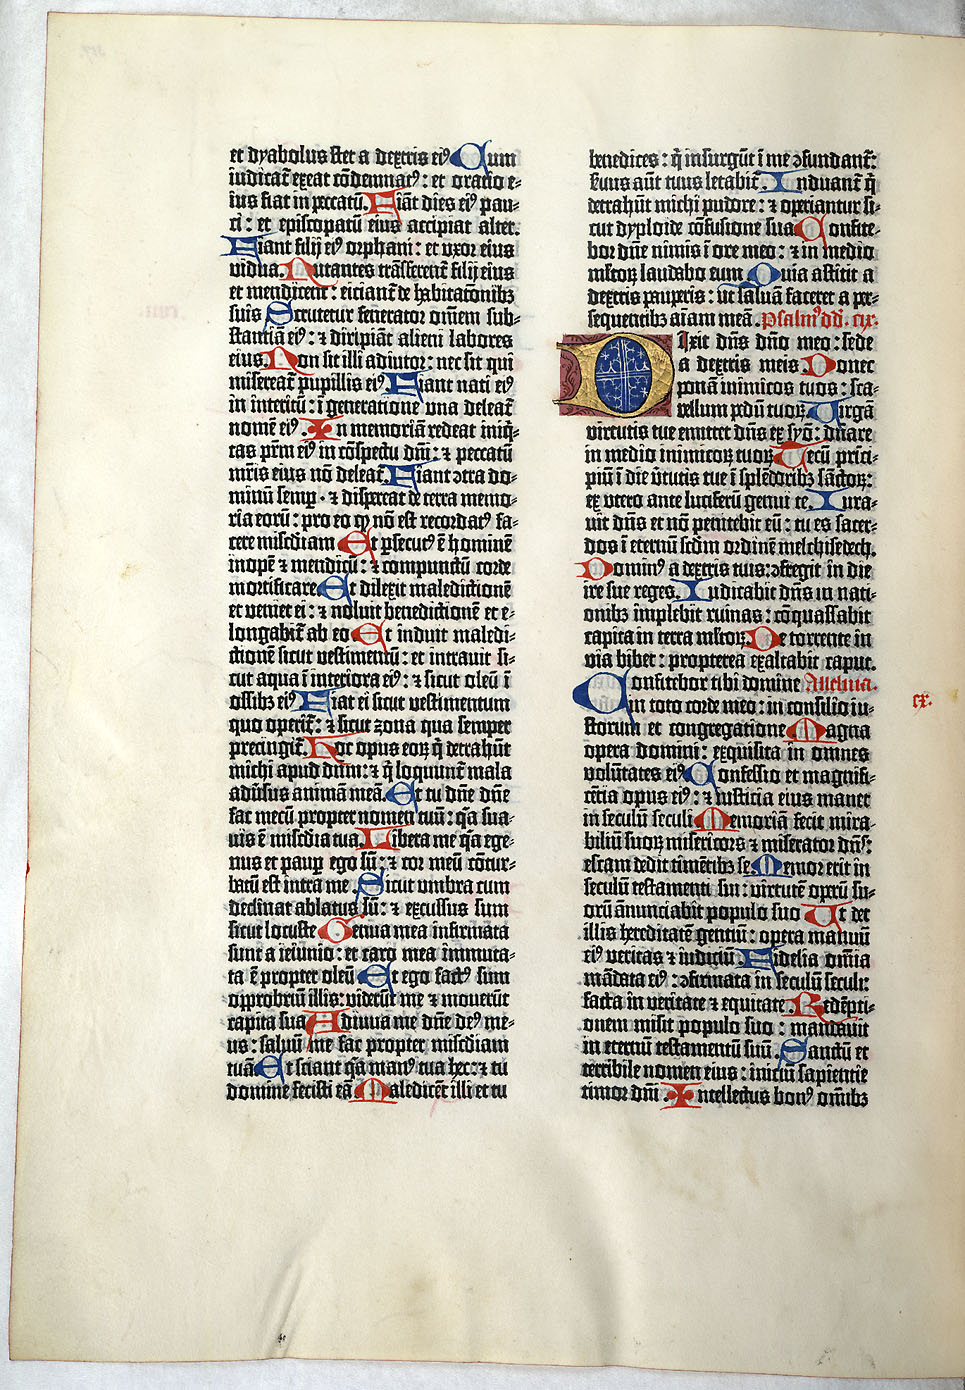 et dyabolus stet a dextris eiꝰ Cum
iudicat̄ exeat cōdemnatꝰ: et oratio e-
ius fiat in peccatū. Fiāt dies eiꝰ pau-
ci: et episcopatū eius accipiat alter.
Fiant filij eiꝰ orphani: et uxor eius
vidua. Nutantes trāsferent̄ filij eius
et mendicent: eiciant̄ de habitatōnibꝫ
suis Scrutetur fenerator om̄em sub-
stantiā eiꝰ: ⁊ diripiāt alieni labores
eius. Non sit illi adiutor: nec sit qui
misereat̄ pupillis eiꝰ Fiant nati eiꝰ
in interitū: ī generatione una deleat̄
nomē eiꝰ. In memoriā redeat iniq̄-
tas pr̄m eiꝰ in cōspectu dn̄i: ⁊ peccatū
mr̄is eius nō deleat̄. Fiant ɔtra do-
minū semꝑ · ⁊ dispereat de terra memo-
ria eorū: pro eo ꝙ nō est recordatꝰ fa-
cere mīscdiam Et ꝑsecutꝰ ē hominē
inopē ⁊ mendicū: ⁊ compunctū corde
mortificare Et dilexit maledictionē
et veniet ei: ⁊ noluit benedictionē et e-
longabit̄ ab eo Et induit maledi-
ctionē sicut vestimentū: et intravit si-
cut aqua ī interiora eiꝰ: ⁊ sicut oleū ī
ossibꝫ eiꝰ Fiat ei sicut vestimentum
quo operit̄: ⁊ sicut zona qua semper
precingit̄. Hoc opus eoꝝ q̄ detrahūt
michi apud dn̄m: ⁊ q̄ loquunt̄ mala
adūsus animā meā. Et tu dn̄e dn̄e
fac mecū propter nomen tuū: q̄a sua-
vis ē mīscdia tua. Libera me q̄a ege-
nus et pauꝑ ego sū: ⁊ cor meū cōtur-
batū est intra me. Sicut umbra cum
declinat ablatus sū: ⁊ excussus sum
sicut locuste Genua mea infirmata
sunt a ieiunio: et caro mea immuta-
ta ē propter oleū Et ego factꝰ sum
opprobriū illis: viderūt me ⁊ moverūt
capita sua Adiuva me dn̄e deꝰ me-
us: salvū me fac propter mīscdiam
tuā Et sciant q̄a manꝰ tua hec: ⁊ tu
domine fecisti eā Maledicēt illi et tu
benedices: q̄ insurgūt ī me ɔfundant̄:
s̄vus aūt tuus letabit̄. Induant̄ q̄
detrahūt michi pudore: ⁊ operiantur si-
cut dyploide cōfusione sua Confite-
bor dn̄e nimis ī ore meo: ⁊ in medio
mltoꝝ laudabo eum Quia astitit a
dextris pauperis: ut salvā faceret a per-
sequentibꝫ aīam meā. Psalmꝰ d̄d. cix.
Dixit dn̄s dn̄o meo: sede
a dextris meis Donec
ponā inimicos tuos: sca-
bellum pedū tuoꝝ Virgā
virtutis tue emittet dn̄s ex syō: dn̄are
in medio inimicoꝝ tuoꝝ Tecū prīci-
piū ī die v̄tutis tue ī splēdoribꝫ sāctoꝝ:
ex utero ante luciferū genui te. Iura-
vit dn̄s et nō penitebit eū: tu es sacer-
dos ī eternū scdm ordinē melchisedech.
Dominꝰ a dextris tuis: ɔfregit in die
ire sue reges. Iudicabit dn̄s in nati-
onibꝫ implebit ruinas: cōquassabit
capita in terra mltoꝝ. De torrente in
via bibet: propterea exaltabit caput.
Confitebor tibi domine Alleluia.
in toto corde meo: in consilio iu- cx.
storum et congregatione Magna
opera domini: exquisita in omnes
volūtates eiꝰ Confessio et magnifi-
cētia opus eiꝰ: ⁊ iusticia eius manet
in seculū seculi Memoriā fecit mira-
biliū suoꝝ misericors ⁊ miserator dn̄s:
escam dedit timētibꝫ se Memor erit in
seculū testamenti sui: virtutē operū su-
orū ānunciabit populo suo Ut det
illis hereditatē gentiū: opera manuū
eiꝰ veritas ⁊ iudiciū. Fidelia om̄ia
mādata eiꝰ: ɔfirmata in seculū seculi:
facta in veritate ⁊ equitate Redēpti-
onem misit populo suo: mandavit
in eternū testamentū suū Sanctū et
terribile nomen eius: iniciū sapientie
timor dn̄i. Intellectus bonꝰ om̄ibꝫ